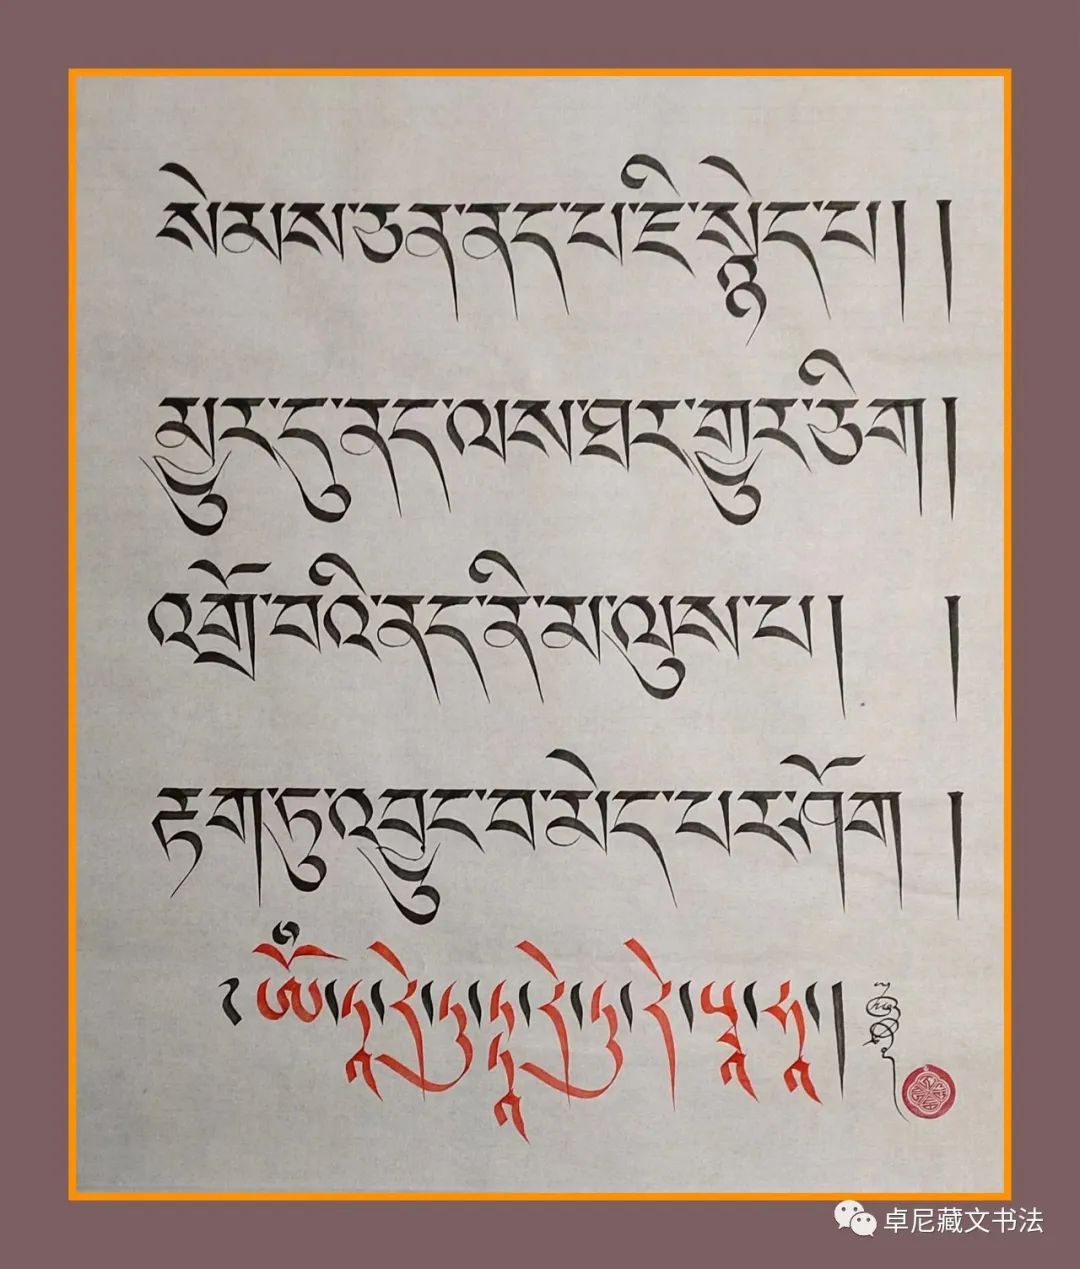 སེམས་ཅན་ནད་པ་ཇི་སྙེད་པ། །
མྱུར་དུ་ནད་ལས་ཐར་གྱུར་ཅིག །
འགྲོ་བའི་ནད་ནི་མ་ལུས་པ། །
རྟག་ཏུ་འབྱུང་བ་མེད་པར་ཤོག །
ཨོཾ་ཏཱ་རེ་ཏུ་ཏྟཱ་རེ་ཏུ་རེ་སྭཱ་ཧཱ།
卓尼藏文书法